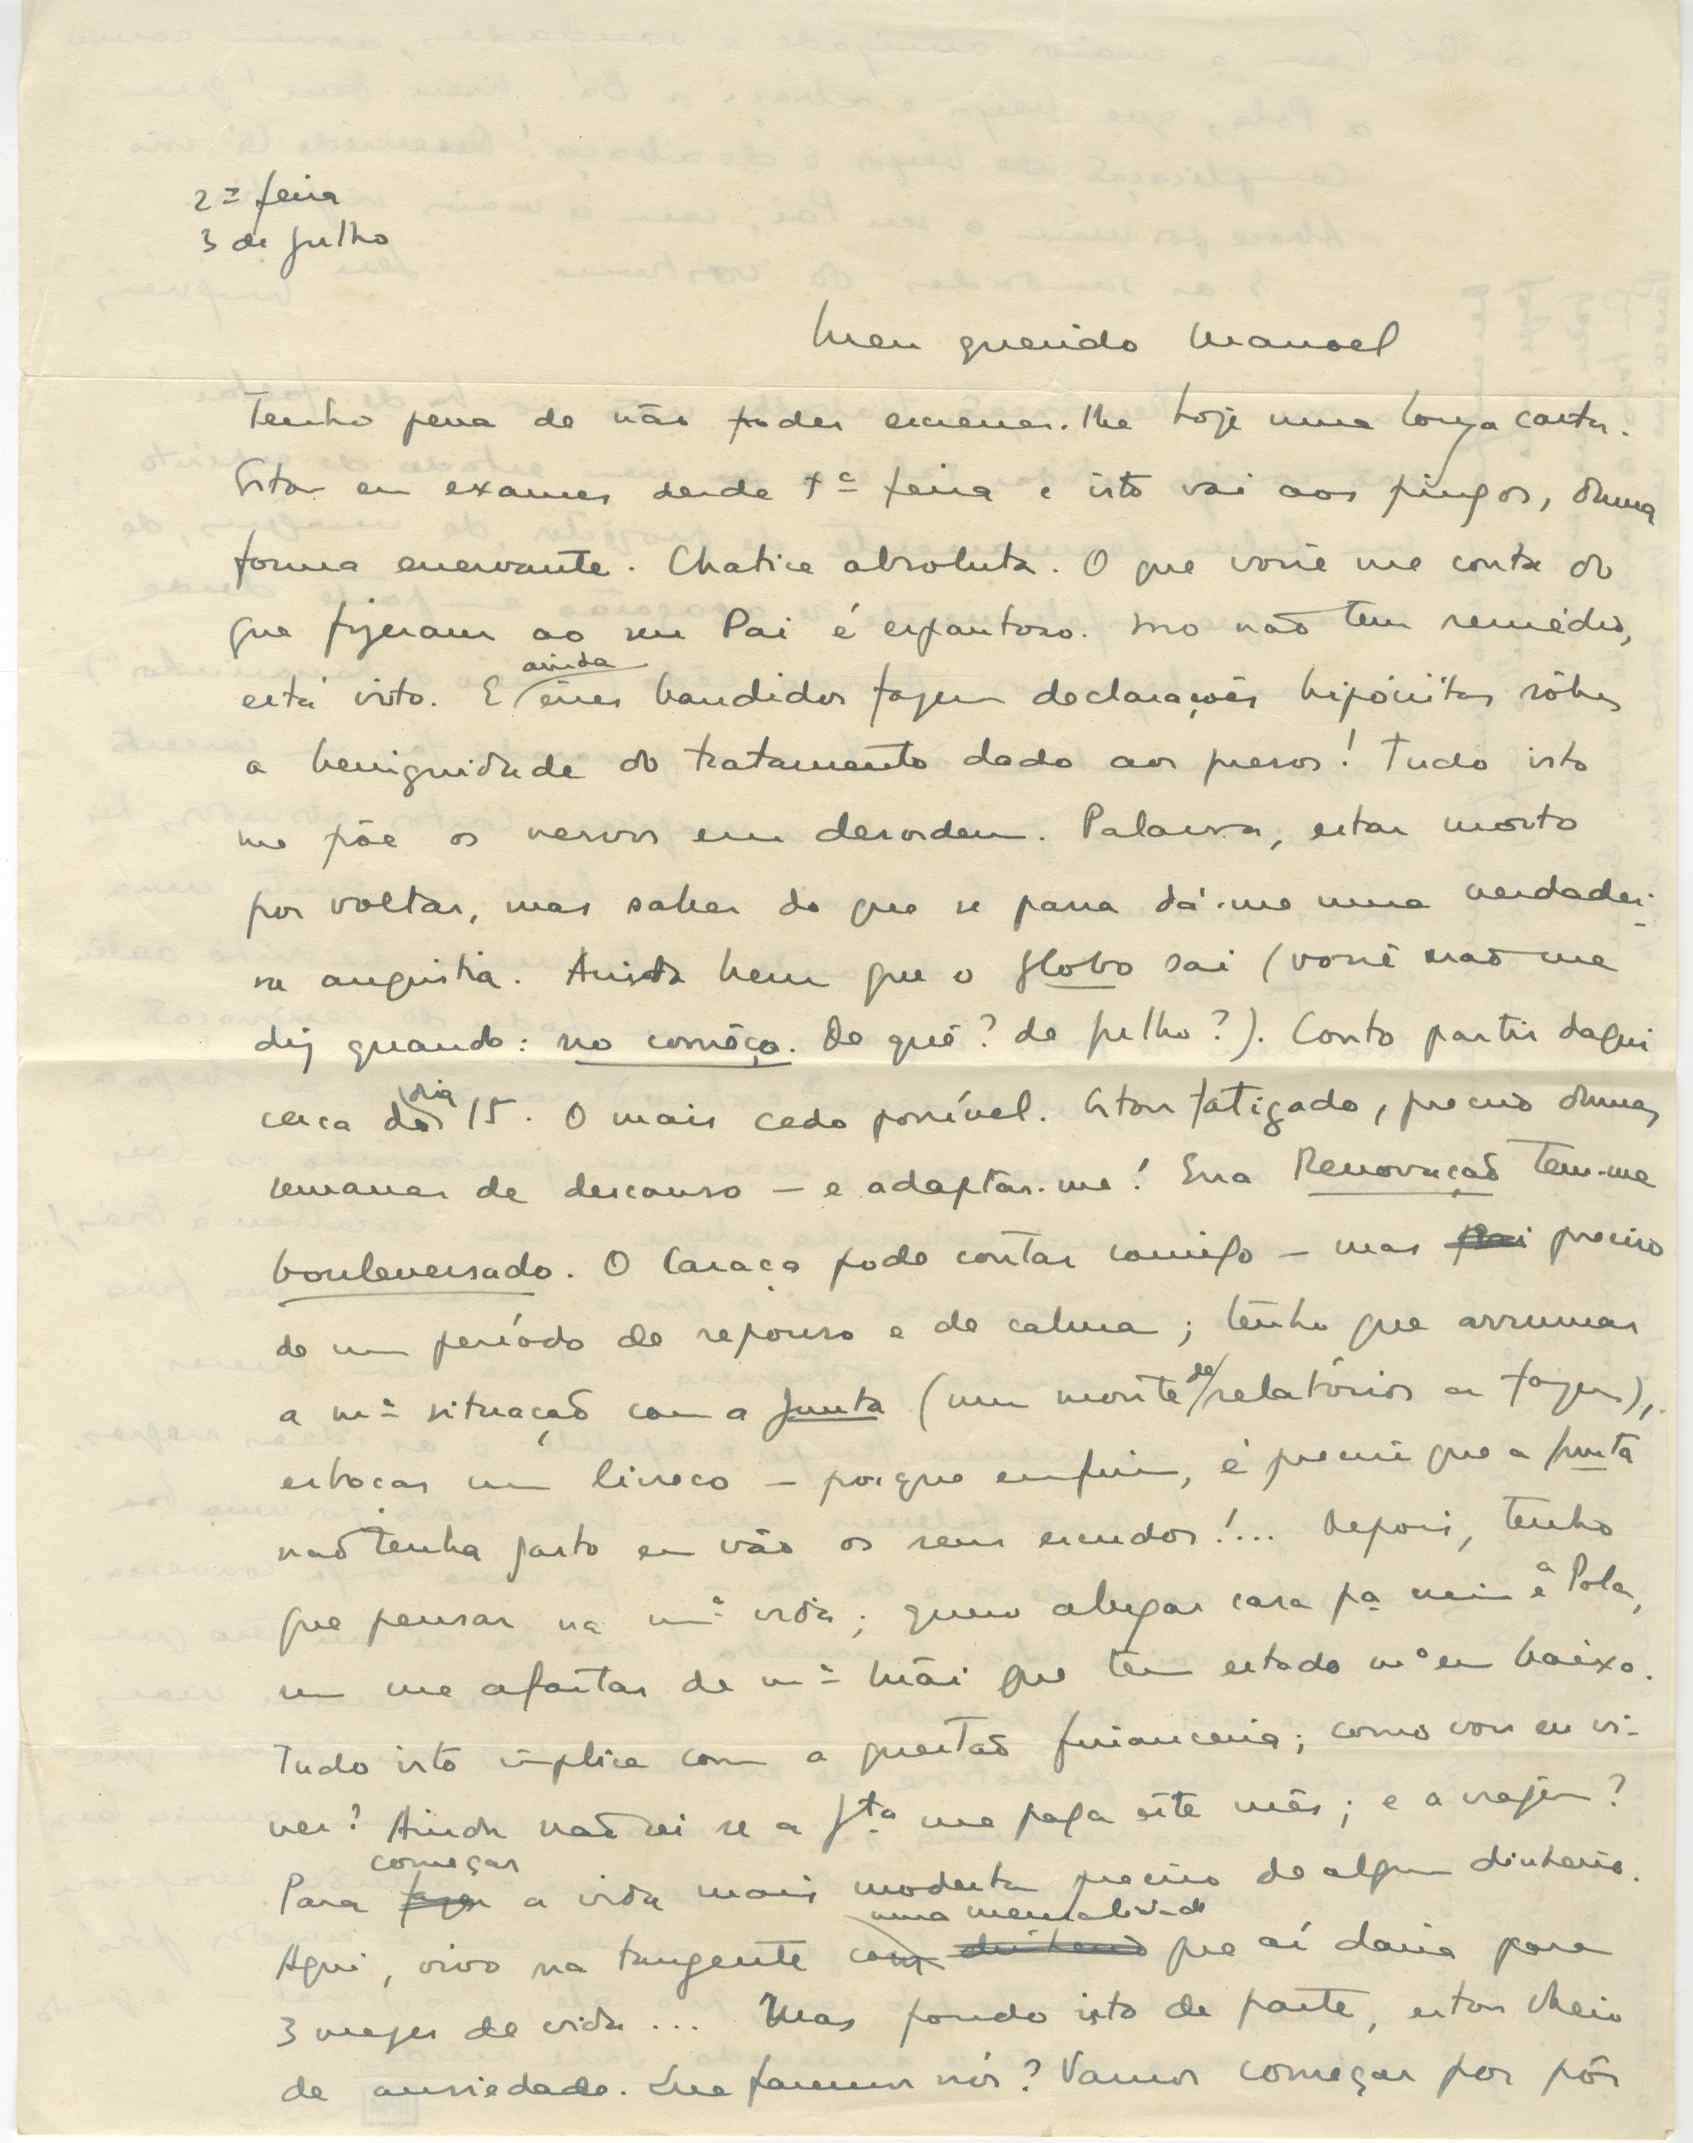 2ª feira
3 de Julho
Meu querido Manoel
Tenho pena de não poder escrever-lhe hoje uma longa carta.
Estou em exames desde 4ª feira e isto vai aos pingos, duma
forma enervante. Chatice absoluta. O que você me conta do
que fizeram ao seu Pai é espantoso. Isso não tem remédio,
está visto. E ainda êsses bandidos fazem declarações hipócritas sôbre
a benignidade do tratamento dado aos presos! Tudo isto
me põe os nervos em desordem. Palavra, estar morto
por voltar, mas saber do que se passa dá-me uma verdadei-
ra angústia. Ainda bem que o Globo sai (você não me
diz quando: no comêço. De quê? de Julho?). Conto partir daqui
cerca do dia 15. O mais cedo possível. Estou fatigado, preciso dumas
semanas de descanso – e adaptar-me! Essa Renovação tem-me
bouleversado. O Caraça pode contar comigo – mas preciso
de um período de repouso e de calma; tenho que arrumar
a mª situação com a Junta (um monte de relatórios a fazer),
esboçar um livreco – porque enfim, é preciso que a Junta
não tenha gasto em vão os seus escudos!... Depois, tenho
que pensar na mª vida; quero alugar casa pª mim e a Pola,
sem me afastar de mª Mãi que tem estado mº em baixo.
Tudo isto implica com a questão financeira; como vou eu vi-
ver? Ainda não sei se a Jta me paga êste mês; e a viagem?
Para começar a vida mais modesta preciso de algum dinheiro.
Aqui, vivo na tangente com uma mensalidade que aí daria para
3 mezes de vida... Mas pondo isto de parte, estou cheio
de ansiedade. Que faremos nós? Vamos começar por pôr